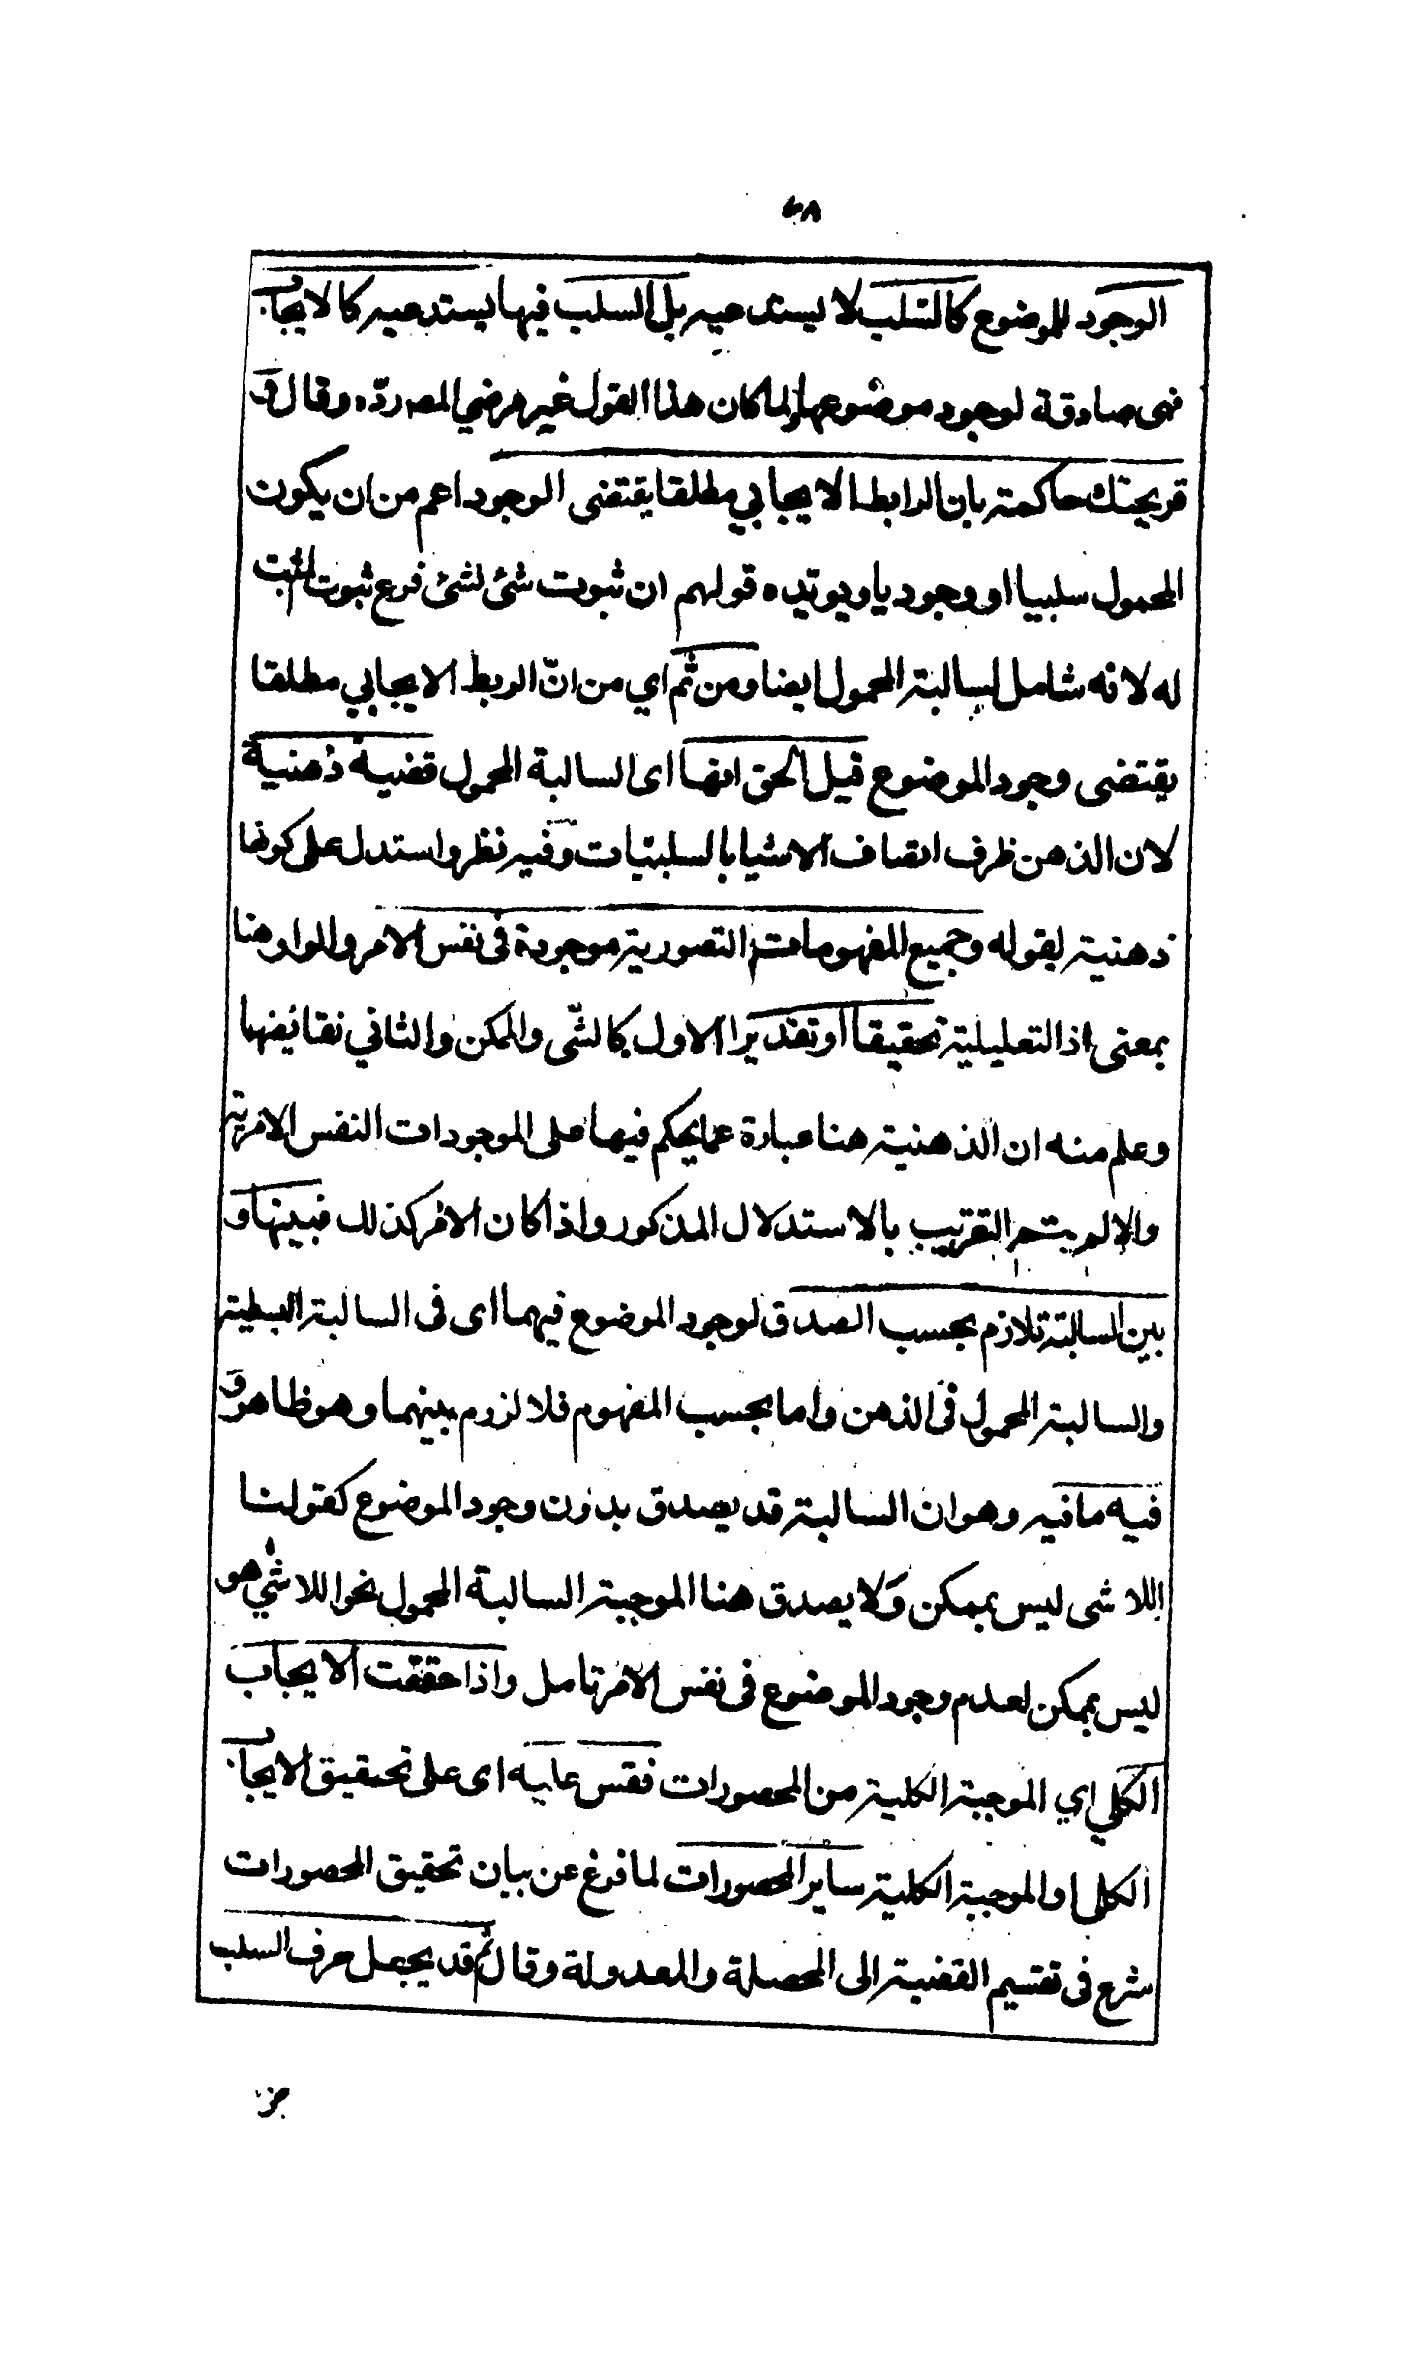 ٦٨
الوجود للموضوع كالسّلب لا يستدعيه بل السلب فيها يستدعيه كالايجاب
فهى صادقة لوجود موضوعها ولما كان هذا القول غير مرضي المصـ ردّه وقال و
قريحتك حاكمة بان الرابط الايجابي مطلقا يقتضى الوجود اعم من ان يكون
المحمول سلبيا او وجود يا ويويده قولهم ان ثبوت شئ لشئ فرع ثبوت المثبت
له لانه شامل لسالبة المحمول ايضا ومن ثم اي من انّ الربط الايجابي مطلقا
يقتضى وجود الموضوع قيل الحق انها اى السالبة المحمول قضية ذهنية
لان الذهن ظرف اتصاف الاشيا بالسلبيات وفيه نظر واستدل على كونها
ذهنية بقوله وجميع المفهومات التصورية موجودة فى نفس الامر والواو هنا
بمعنى اذ التعليلية تحقيقا او تقديرا الاول كالشّى والممكن والثاني نقائضها
وعلم منه ان الذهنية هنا عبارة عما يحكم فيها على الموجودات النفس الامرية
والا لم يتم التقريب بالاستدلال المذكور واذا كان الامر كذلك فبينها و
بين السالبة تلازم بحسب الصدق لوجود الموضوع فيهما اى فى السالبة البسيطة
والسالبة المحمول فى الذهن واما بحسب المفهوم فلا لزوم بينهما وهو ظاهر و
فيه مافيه وهو ان السالبة قد يصدق بدون وجود الموضوع كقولنا
اللاشى ليس بممكن ولا يصدق هنا الموجبة السالبة المحمول نحو اللاشي هو
ليس بممكن لعدم وجود الموضوع فى نفس الامر تامل واذا حققت الايجاب
الكلي اي الموجبة الكلية من المحصورات فقس عليه اى على تحقيق الايجاب
الكلى او الموجبة الكلية ساير المحصورات لما فرغ عن بيان تحقيق المحصورات
شرع فى تقسيم القضية الى المحصلة والمعدولة وقال ثم قد يجعل حرف السلب
جز